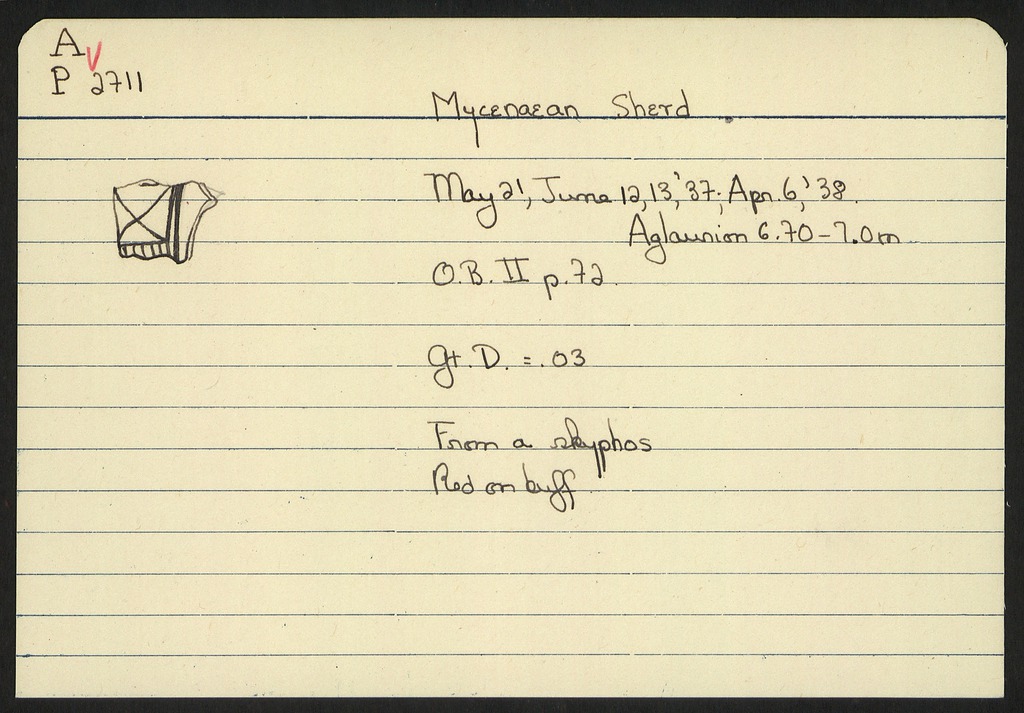 A
P 2711
Mycenaean Sherd
May 21, June 12, 13, '37; Apr. 6, '38.
Aglaurion 6.70-7.0m
O.B. II p.72.
Gt. D. = .03
From a skyphos
Red on buff